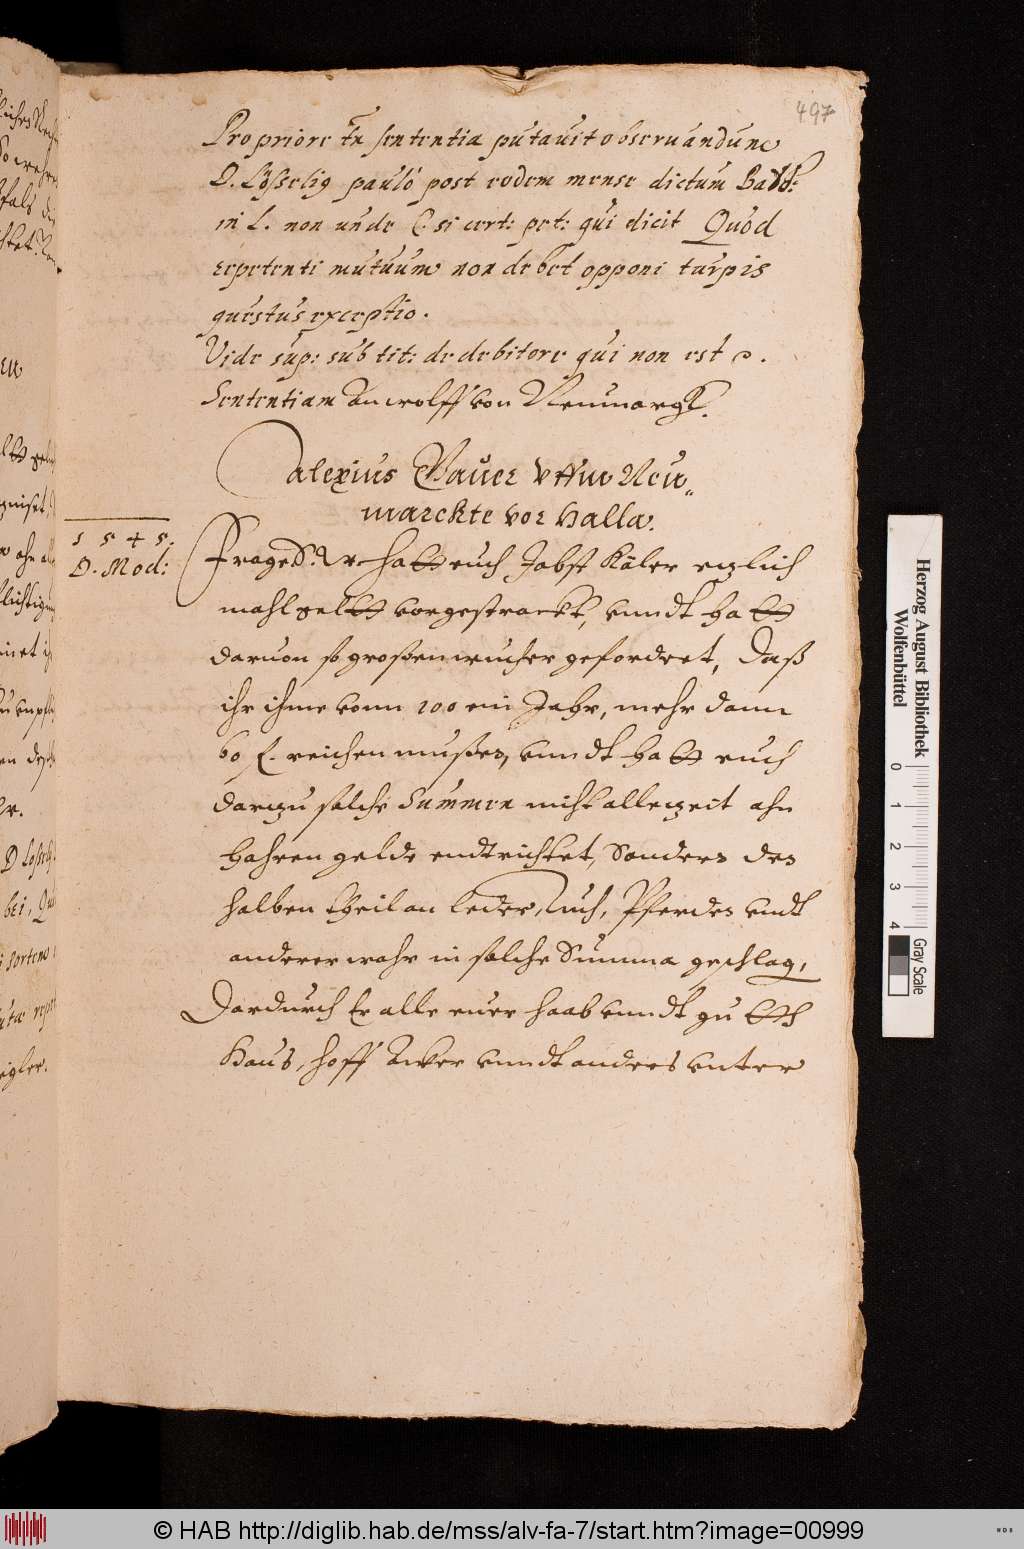 497
Pro priore tn sententia putauit obseruandum
D. Lösselig pauló post eodem mense dictum Bald:
in L. non unde C. si cert: pet: qui dicit Quód
repetenti mutuum non debet opponi turpis
quęstus exceptio.
Vide sup: sub tit: de debitore qui non est
Sententiam An wolff von Neumargk.
Alexius Bauer vffm Neu„
marckte vor Halla.
1545.
D. Mod:
Fraged: Ar hatt euch Jobst Käler etzlich
mahl geltt vorgestrackt, vnndt hatt
daruon so großen wucher gefordert, Daß
ihr ihme vom 100 ein Jahr, mehr dann
60 f. reichen mußen, vnndt hatt euch
darzu solche Summen nicht allezeit ahn
bahren gelde endtrichtet, Sonders des
halben theil an leder, tuch, Pferdes vndt
anderer wahr in solche Summa geschlag,
Dardurch Er alle euer haab vnndt gutth
Haus, hoff Acker vnndt anders vnter
Herzog August Bibliothek
Wolfenbüttel
0 1 2 3 4
Gray Scale
© HAB http://diglib.hab.de/mss/alv-fa-7/start.htm?image=00999